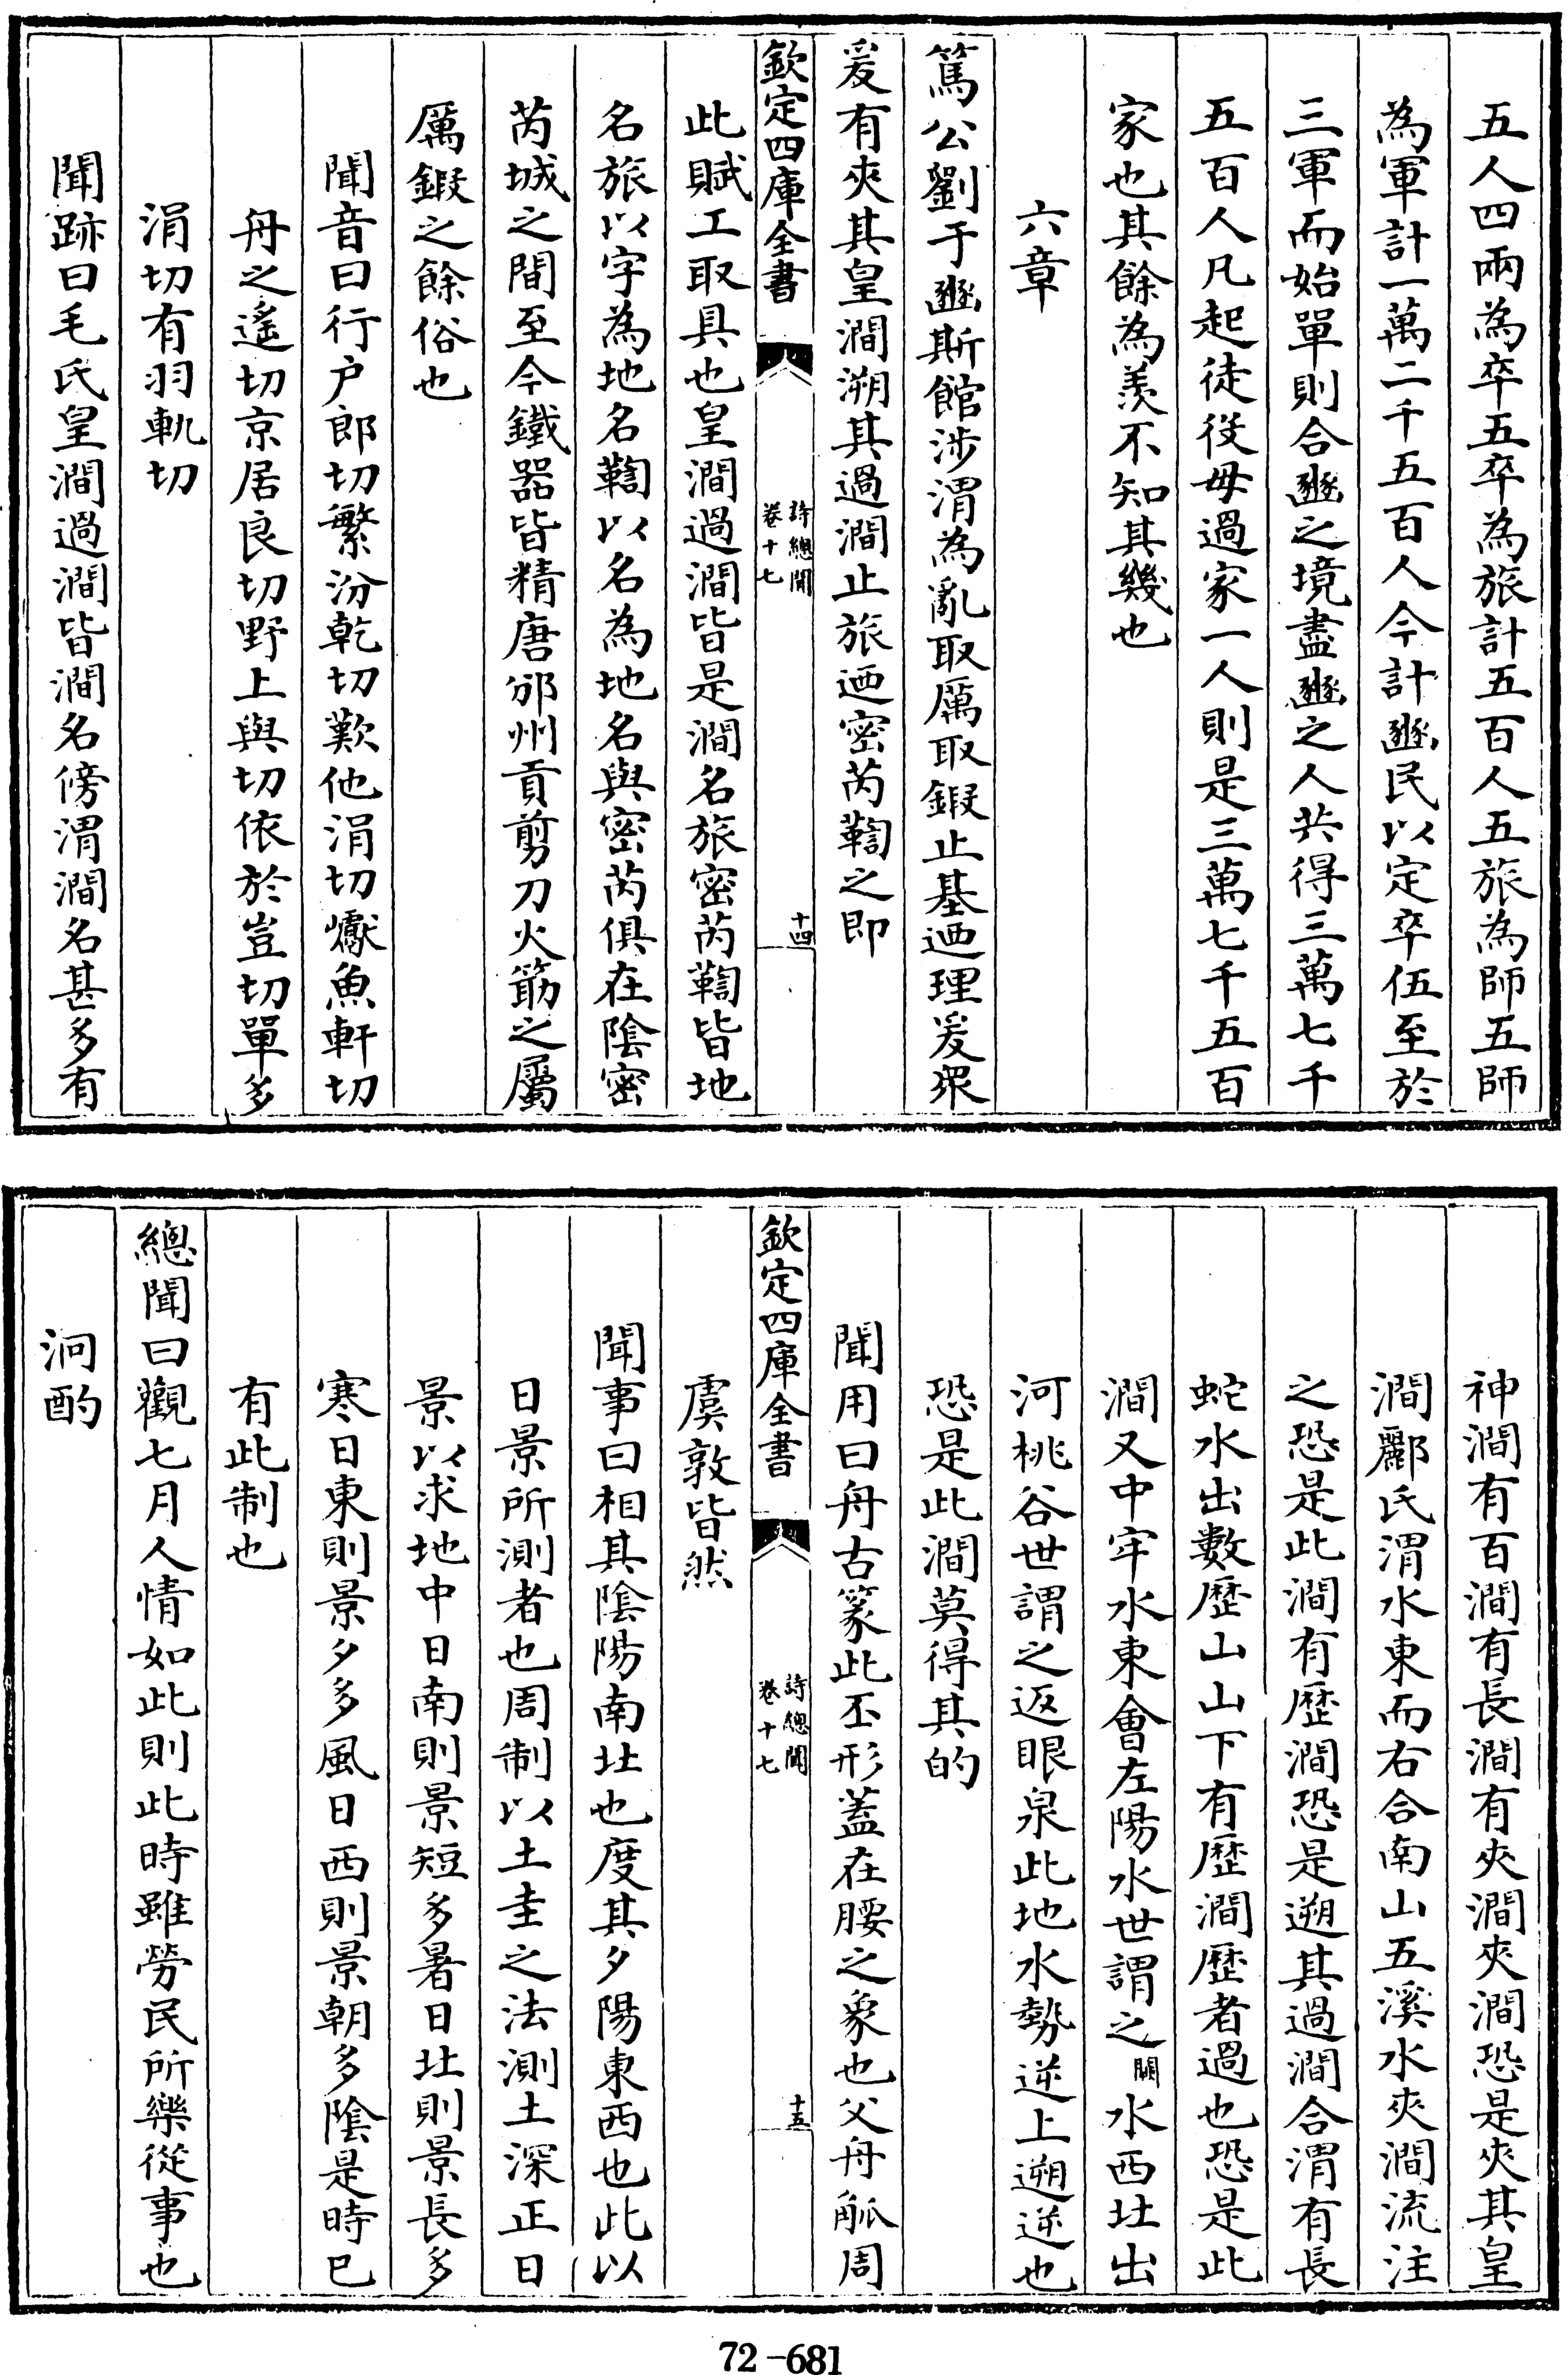 五人四兩為卒五卒為旅計五百人五旅為師五師
為軍計一萬二千五百人今計豳民以定卒伍至於
三軍而始單則合豳之境盡豳之人共得三萬七千
五百人凡起徒役毋過家一人則是三萬七千五百
家也其餘為羨不知其幾也
六章
篤公劉于豳斯館涉渭為亂取厲取鍛止基迺理爰衆
爰有夾其皇澗溯其過澗止旅迺密芮鞫之即
欽定四庫全書
詩總聞
卷十七
十四
此賦工取具也皇澗過澗皆是澗名旅密芮鞫皆地
名旅以字為地名鞫以名為地名與密芮俱在陰密
芮城之間至今鐵器皆精唐邠州貢剪刀火筯之屬
厲鍛之餘俗也
聞音曰行户郎切繁汾乾切歎他涓切巘魚軒切
舟之遙切京居良切野上與切依於豈切單多
涓切有羽軌切
聞跡曰毛氏皇澗過澗皆澗名傍渭澗名甚多有
神澗有百澗有長澗有夾澗夾澗恐是夾其皇
澗酈氏渭水東而右合南山五溪水夾澗流注
之恐是此澗有歷澗恐是遡其過澗合渭有長
蛇水出數歷山山下有歷澗歷者過也恐是此
澗又中牢水東會左陽水世謂之闕水西北出
河桃谷世謂之返眼泉此地水勢逆上遡逆也
恐是此澗莫得其的
聞用曰舟古篆此丕形蓋在腰之象也父舟觚周
欽定四庫全書
詩總聞
卷十七
十五
虞敦皆然
聞事曰相其陰陽南北也度其夕陽東西也此以
日景所測者也周制以土圭之法測土深正日
景以求地中日南則景短多暑日北則景長多
寒日東則景夕多風日西則景朝多陰是時已
有此制也
總聞曰觀七月人情如此則此時雖勞民所樂從事也
泂酌
72-681